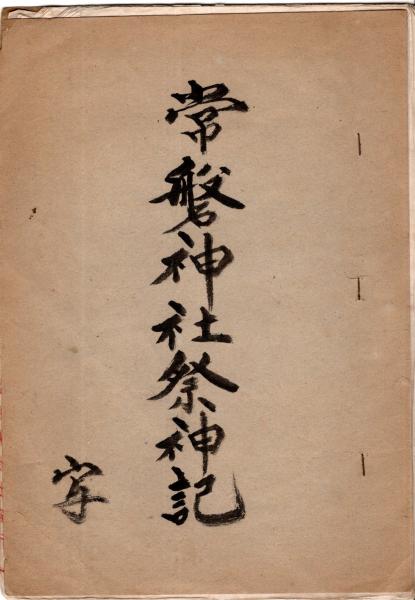 常磐神社祭神記
写